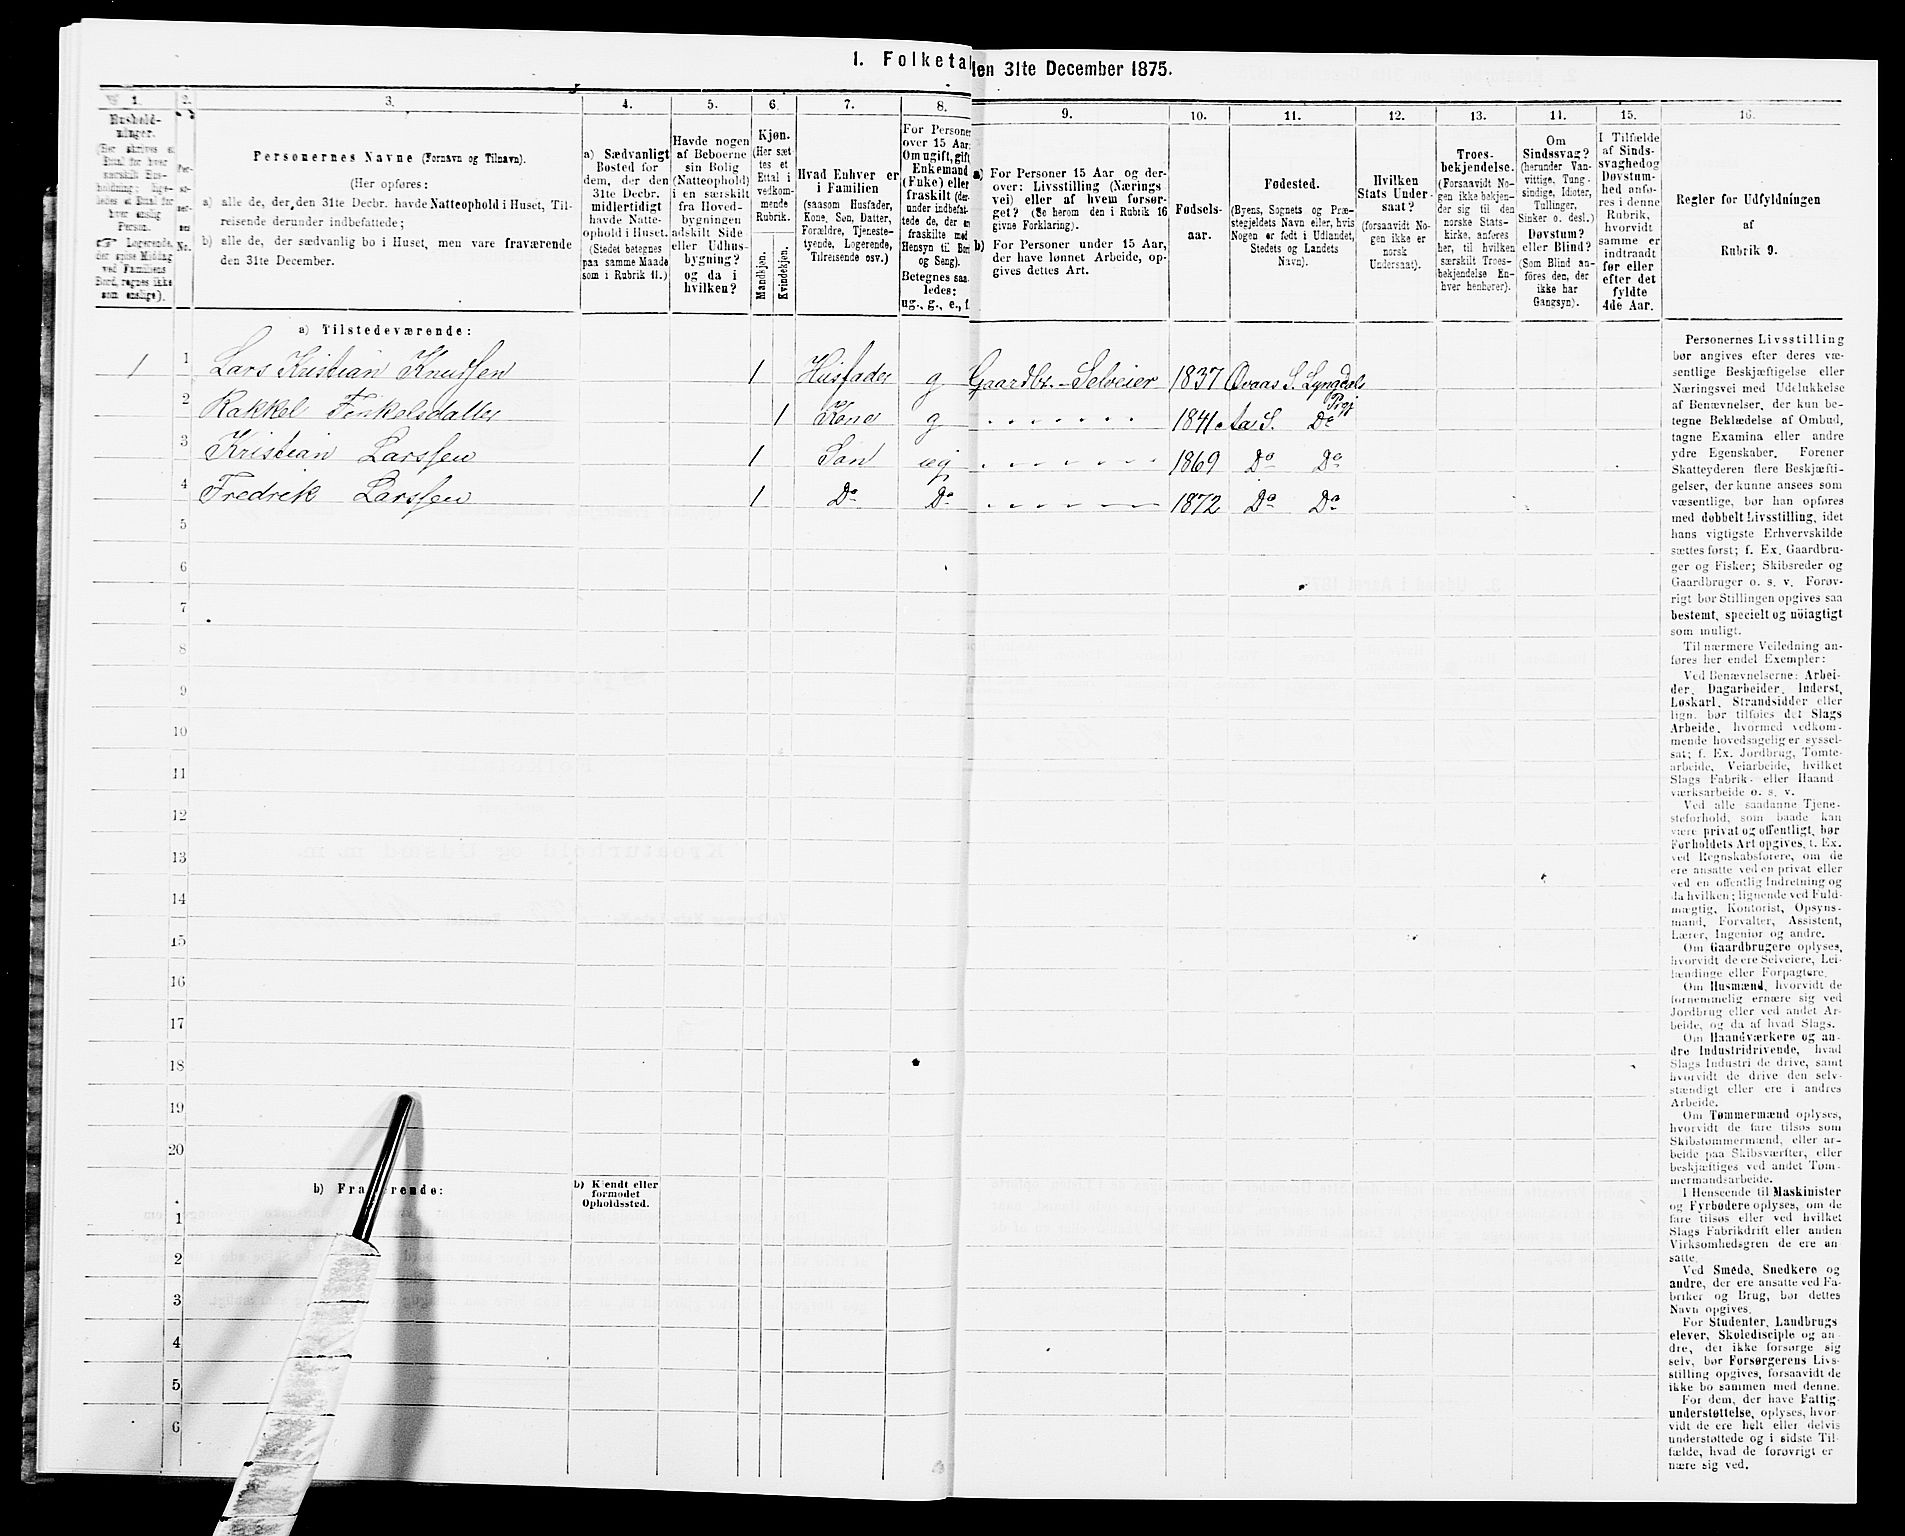 1. Folketal den 31te December 1875.
1. 2. 3. 4. 5. 6. 7. 8. 9. 10. 11. 12. 13. 14. 15. 16.
Hushold-
ninger.
(Her skrives et
Ettal for hver
særskilt Hus-
holdning; lige-
ledes et Ettal for
hver enslig
Person.
☞ Logerende,
der spise Middag
ved Familiens
Bord, regnes ikke
som enslige).
Per-
so-
ner-
nes
No.
Personernes Navne (Fornavn og Tilnavn).
(Her opføres:
a) alle de, der den 31te Decbr. havde Natteophold i Huset, Til-
reisende derunder indbefattede;
b) alle de, der sædvanlig bo i Huset, men vare fraværende
den 31te December.
a) Sædvanligt
Bosted for
dem, der den
31te Decbr.
midlertidigt
havde Natte-
ophold i Huset.
(Stedet betegnes
paa samme Maade
som i Rubrik 11.)
Havde nogen
af Beboerne
sin Bolig
(Natteophold)
i en særskilt
fra Hoved-
bygningen
adskilt Side
eller Udhus-
bygning?
og da i
hvilken?
Kjøn.
(Her sæt-
tes et
Ettal i
vedkom-
mende
Rubrik.
Mandkjøn.
Kvindekjøn.
Hvad Enhver er
i Familien
(saasom Husfader,
Kone, Søn, Datter,
Forældre, Tjeneste-
tyende, Logerende,
Tilreisende osv.)
For Personer
over 15 Aar:
Om ugift, gift,
Enkemand
(Enke) eller
fraskilt (der-
under indbefat-
tede de, der ere
fraskilte med
Hensyn til Bord
og Seng).
Betegnes saa-
ledes:
ug., g., e., f.
a) For Personer 15 Aar og der-
over: Livsstilling (Nærings
vei) eller af hvem forsør-
get? (Se herom den i Rubrik 16
givne Forklaring).
b) For Personer under 15 Aar,
der have lønnet Arbeide, op-
gives dettes Art.
Fødsels-
aar.
Fødested.
(Byens, Sognets og Præ-
stegjeldets Navn eller, hvis
Nogen er født i Udlandet,
Stedets og Landets
Navn).
Hvilken
Stats Under-
saat?
(forsaavidt No-
gen ikke er
norsk
Undersaat).
Troes-
bekjendelse.
(Forsaavidt No-
gen ikke bekjen-
der sig til den
norske Stats-
kirke, anføres
her, til hvilken
særskilt Troes-
bekjendelse En-
hver henhører).
Om
Sindssvag?
(herunder Van-
vittige, Tung-
sindige, Idioter,
Tullinger,
Sinker o. desl.)
Døvstum?
eller Blind?
(Som Blind an-
føres den, der
ikke har
Gangsyn).
I Tilfælde
af Sinds-
svaghed og
Døvstum-
hed anfø-
res i denne
Rubrik,
hvorvidt
samme er
indtraadt
før eller
efter det
fyldte
4de Aar.
Regler for Udfyldningen
af
Rubrik 9.
a) Tilstedeværende:
1 1 Lars Kristian Knudssen 1 Husfader g Gaardbr. - Selveier 1837 Qvaas S. Lyngdals Prgj
2 Rakkel Tenkelsdatter 1 Kone g 1841 Aa S. Do
3 Kristian Larssen 1 Søn ug 1869 Do Do
4 Fredrik Larssen 1 Do Do 1872 Do Do
5
6
7
8
9
10
11
12
13
14
15
16
17
18
19
20
b) Fraværende:
b) Kjendt eller
formodet
Opholdssted.
1
2
3
4
5
6
Personernes Livsstilling
bør angives efter deres væ-
sentlige Beskjæftigelse eller
Næringsvei med Udelukkelse
af Benævnelser, der kun be-
tegne Beklædelse af Ombud,
tagne Examina eller andre
ydre Egenskaber. Forener
Skatteyderen flere Beskjæfti-
gelser, der kunne ansees som
væsentlige, bør han opføres
med dobbelt Livsstilling, idet
hans vigtigste Erhvervskilde
sættes først; f. Ex. Gaardbru-
ger og Fisker; Skibsreder og
Gaardbruger o. s. v. Forøv-
rigt bør Stillingen opgives saa
bestemt, specielt og nöiagtigt
som muligt.
Til nærmere Veiledning an-
føres her endel Exempler:
Ved Benævnelserne: Arbei-
der, Dagarbeider, Inderst,
Løskarl, Strandsidder eller
lign. bør tilføies det Slags
Arbeide, hvormed vedkom-
mende hovedsagelig er syssel-
sat; f. Ex. Jordbrug, Tomte-
arbeide, Veiarbeide, hvilket
Slags Fabrik- eller Haand
værksarbeide o. s. v.
Ved alle saadanne Tjene-
steforhold, som baade kan
være privat og offentligt, bør
Forholdets Art opgives, f. Ex.
ved Regnskabsførere, om de
ere ansatte ved en privat eller
ved en offentlig Indretning og
da hvilken; lignende ved Fuld-
mægtig, Kontorist, Opsyns-
mand, Forvalter, Assistent,
Lærer, Ingeniør og andre.
Om Gaardbrugere oplyses,
hvorvidt de ere Selveiere, Lei-
lændinge eller Forpagtere.
Om Husmænd, hvorvidt de
fornemmelig ernære sig ved
Jordbrug eller ved andet Ar-
beide, og da af hvad Slags.
Om Haandværkere og an-
dre Industridrivende, hvad
Slags Industri de drive, samt
hvorvidt de drive den selv-
stændigt eller ere i andres
Arbeide.
Om Tømmermænd oplyses,
hvorvidt de fare tilsøs som
Skibstømmermænd, eller ar-
beide paa Skibsværfter, eller
beskjæftiges ved andet Tøm-
mermandsarbeide.
I Henseende til Maskinister
og Fyrbødere oplyses, om de
fare tilsøs eller ved hvilket
Slags Fabrikdrift eller anden
Virksomhedsgren de ere an-
satte.
Ved Smede, Snedkere og
andre, der ere ansatte ved Fa-
briker og Brug, bør dettes
Navn opgives.
For Studenter, Landbrugs
elever, Skoledisciple og an-
dre, der ikke forsørge sig
selv, bør Forsørgerens Livs-
stilling opgives, forsaavidt de
ikke bo sammen med denne.
For dem, der have Fattig-
understøttelse, oplyses, hvor-
vidt de ere helt eller delvis
understøttede og i sidste Til-
fælde, hvad de forøvrigt er
nære sig ved.